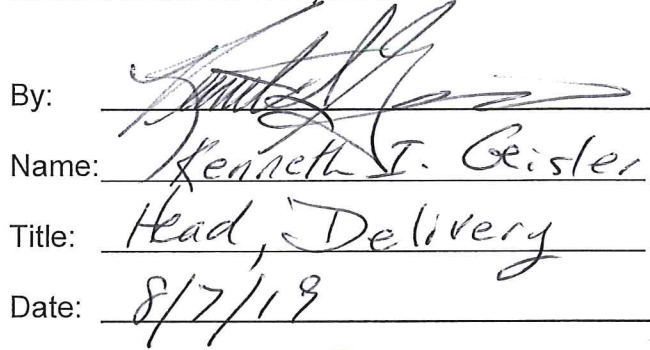 By:
Name: Kenneth I. Geisler
Title: Head, Delivery
Date: 8/7/19